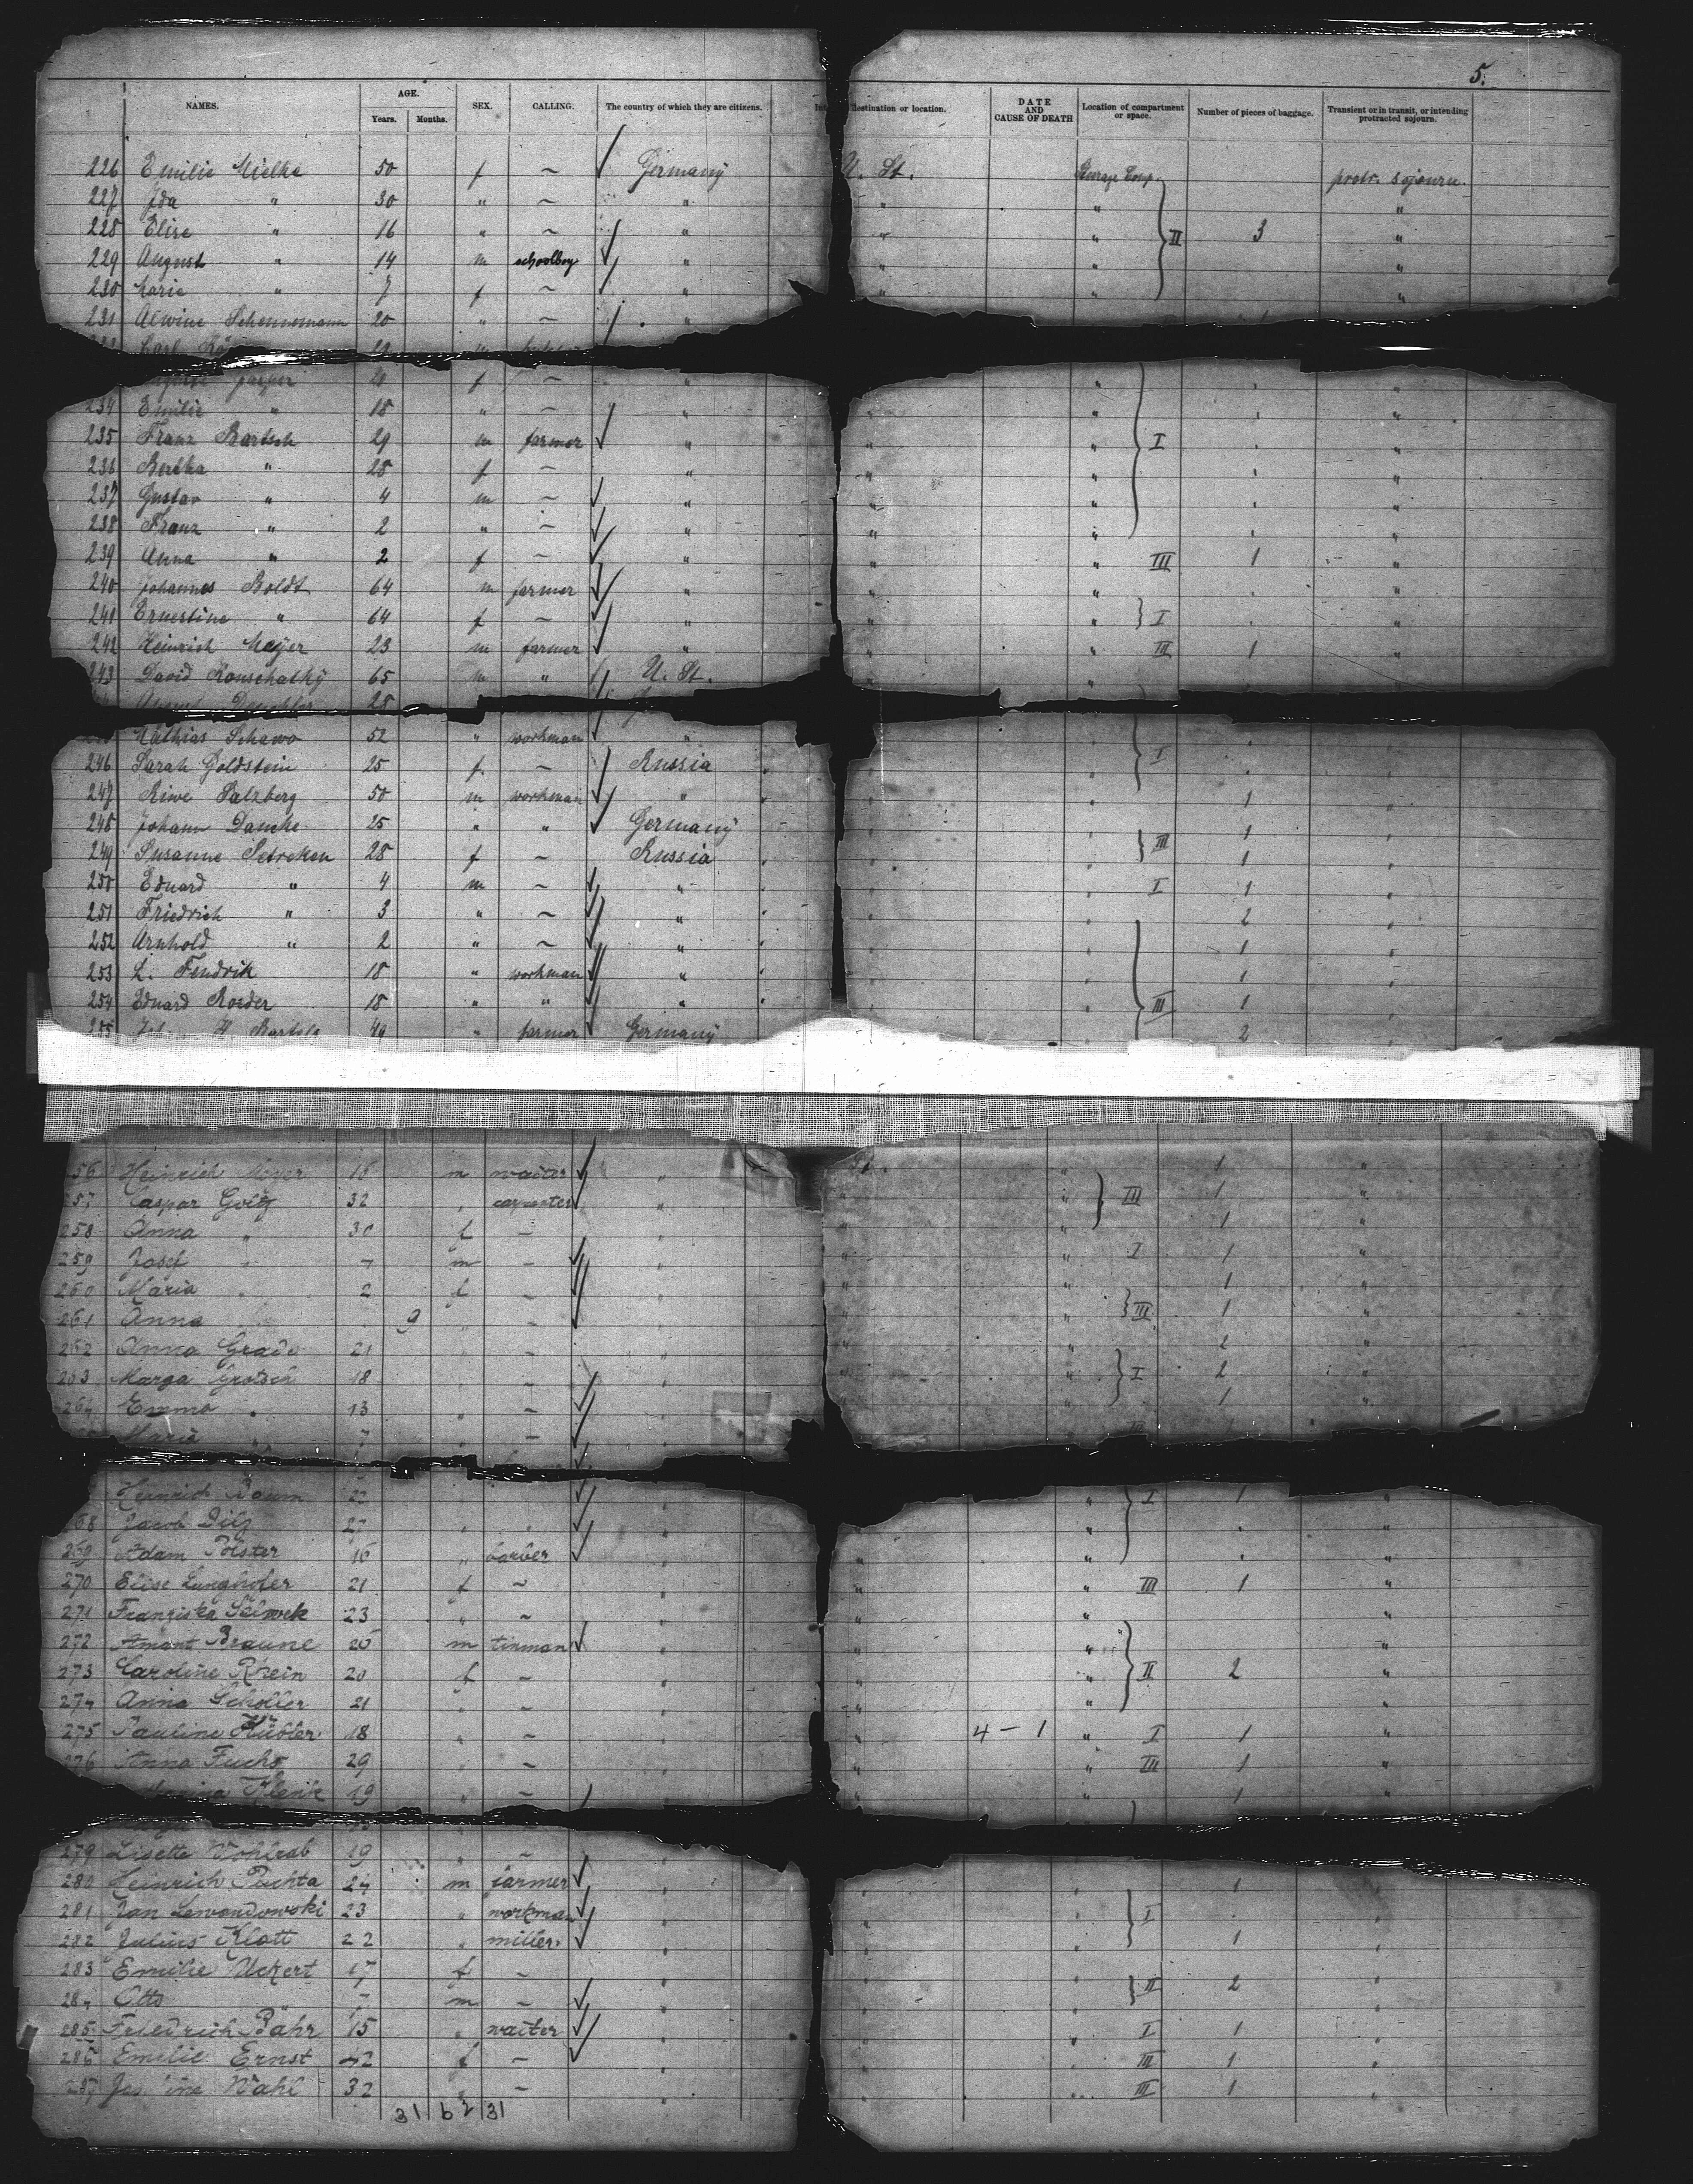 5.
NAMES. AGE. Years. Months. SEX. CALLING. The country of which they are citizens. Destination or location. DATE AND CAUSE OF DEATH Location of compartment or space. Number of pieces of baggage. Transient or in transit, or intending protracted sojourn.
226 Emilie Mielke 50 f ~ Germany U. St. Steerage Comp. protr. sojourn.
227 Ida " 30 " ~ " " " "
228 Elise " 16 " ~ " " " II 3 "
229 August " 14 m schoolboy " " " "
230 Marie " 7 f ~ " " " "
231 Alwine Schennemann 20 " ~ "
Carl
Jasper 20 f ~ " "
234 Emilie " 18 " ~ " " " "
235 Franz Bartsch 29 m farmer " " " I "
236 Bertha " 28 f ~ " " " "
237 Gustav " 4 m ~ " " " "
238 Franz " 2 " ~ " " " "
239 Anna " 2 f ~ " " " III 1 "
240 Johannes Boldt 64 m farmer " " " "
241 Ernestine " 64 f ~ " " " I "
242 Heinrich Meyer 23 m farmer " " " III 1 "
243 David 65 m " U. St. "
28
Mathias Schawo 52 " workman " I
246 Sarah Goldstein 25 f. ~ Russia
247 Riwe Salzberg 50 m workman " 1
248 Johann Damke 25 " " Germany III 1
249 Susanne 28 f ~ Russia 1
250 Eduard " 4 m ~ " I 1
251 Friedrich " 3 " ~ " 2
252 Arnhold " 2 " ~ " 1
253 L. Fendrik 18 " workman " 1
254 Eduard Roeder 18 " " " III 1
255 H. Bartels 49 " farmer Germany 2
256 Heinrich Meyer 18 m waiter " " 1 "
257 Caspar Götz 32 " carpenter " " III 1 "
258 Anna " 30 f - " 1
259 Josef " 7 m - " " I 1 "
260 Maria " 2 f - " " 1 "
261 Anna 9 " - " " III 1 "
262 Anna Grade 21 " - " " 2 "
263 Marga Grötsch 18 " - " " I 2 "
264 Emma " 13 " - " " 1 "
Maria " 7 " - "
Heinrich Baum 22 " " I 1 "
268 Jacob Dilg 27 " " " " "
269 Adam Polster 16 " barber " " "
270 Elise Lunghofer 21 f ~ " " III 1 "
271 Franziska 23 " ~ " " "
272 Amant Braune 25 m tinman " " "
273 Caroline Rhein 20 f - " " II 2 "
274 Anna Scholler 21 " - " " "
275 Pauline Hübler 18 " - " 4 - 1 " I 1 "
276 Anna Fuchs 29 " - " " III 1 "
Klenk 19 " - " " 1 "
279 Lisette Wohlrab 19 " ~ "
280 Heinrich Puchta 24 m farmer " 1
281 Jan Lewandowski 23 " workman " I
282 Julius Klatt 22 " miller " 1
283 Emilie Uckert 17 f - "
284 Otto 7 m - " II 2
285 Friedrich Bähr 15 " waiter " I 1
286 Emilie Ernst 42 f - " III 1
287 Wahl 32 " - " III 1
31 62 31